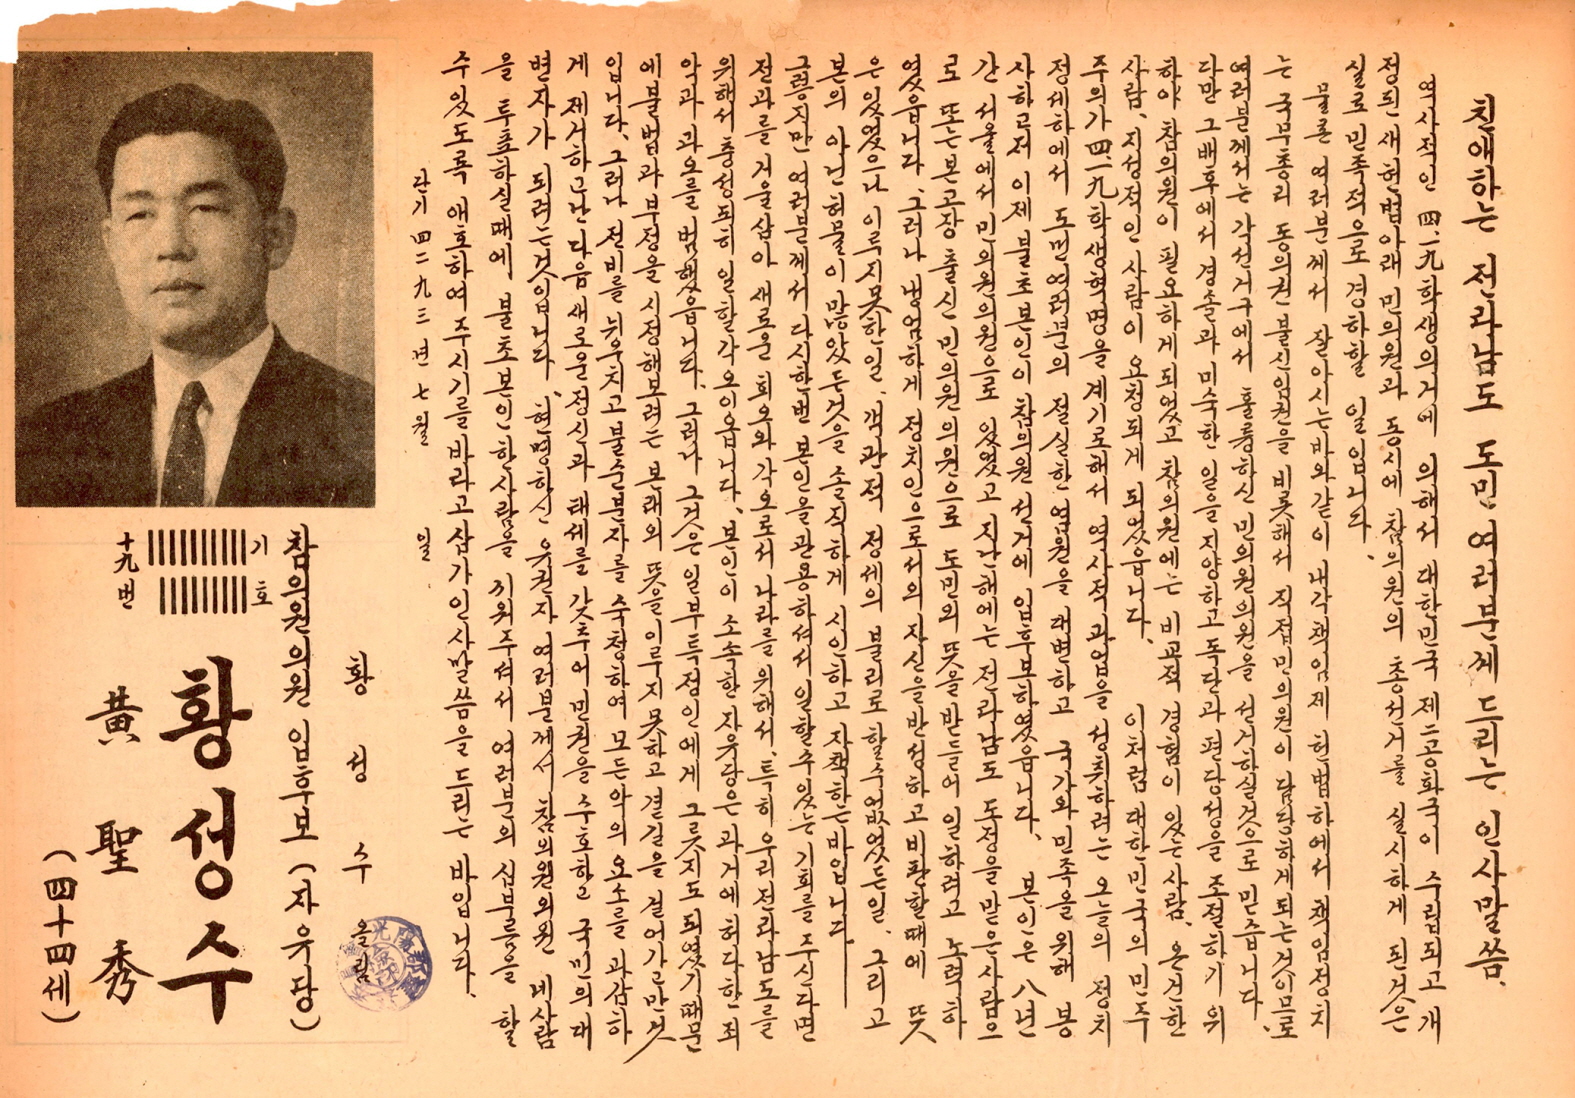 친애하는 전라남도 도민 여러분께 드리는 인사말씀.
역사적인 四.一九 학생의거에 의해서 대한민국 제二공화국이 수립되고 개
정된 새헌법아래 민의원과 동시에 참의원의 총선거를 실시하게 된것은
실로 민족적으로 경하할 일입니다.
물론 여러분께서 잘아시는바와같이 내각책임제 헌법하에서 책임정치
는 국무총리 동의권 불신임권을 비롯해서 직접민의원이 담당하게되는것이므로
여러분께서는 각선거구에서 훌륭하신 민의원의원을 선거하실것으로 믿습니다.
다만 그배후에서 경솔과 미숙한 일을지양하고 독단과 편당성을 조절하기 위
하야 참의원이 필요하게되었고 참의원에는 비교적 경험이 있는사람, 온건한
사람, 지성적인 사람이 요청되게 되었읍니다. 이처럼 대한민국의 민주
주의가 四.一九 학생혁명을 계기로해서 역사적 과업을 성취하려는 오늘의 정치
정세하에서 도민여러분의 절실한 염원을 대변하고 국가와 민족을위해 봉
사하고저 이제 불초본인이 참의원 선거에 입후보하였읍니다. 본인은 八년
간 서울에서 민의원의원으로 있었고 지난해에는 전라남도 도정을 맡은사람으
로 또는본고장 출신 민의원의원으로 도민의 뜻을받들어 일하려고 노력하
였읍니다. 그러나 냉엄하게 정치인으로서의 자신을반성하고비판할때에 뜻
은있었으나 이루지못한일, 객관적 정세의 불리로할수없었든일, 그리고
본의 아닌허물이 많았든것을 솔직하게 시인하고 자책하는바입니다.
그렇지만 여러분께서 다시한번 본인을관용하셔서 일할수있는 기회를 주신다면
전과를 거울삼아 새로운 회오와 각오로서 나라를위해서, 특히 우리전라남도를
위해서 충성되히 일할각오이옵니다. 본인이 소속한 자유당은 과거에허다한 죄
악과 과오를 범했읍니다. 그러나 그것은 일부특정인에게 그릇지도 되였기때문
에불법과부정을 시정해보려는 본래의 뜻을이루지못하고 결길을 걸어가고만것
입니다. 그러나 전비를 뉘우치고 불순분자를 숙청하여 모든악의 요소를 과감하
게 제거하고난다음 새로운정신과 태세를 갖추어 민권을수호하고 국민의대
변자가 되려는것입니다. 현명하신 유권자 여러분께서 참의원의원 네사람
을 투표하실때에 불초본인 한사람을 끼워주셔서 여러분의 심부름을 할
수있도록 애호하여 주시기를바라고 삼가인사말씀을 드리는 바입니다.
단기 四二九三년 七월 일
황성수 올림
참의원의원 입후보 (자유당)
기호
十九번
황성수
黃聖秀
(四十四세)